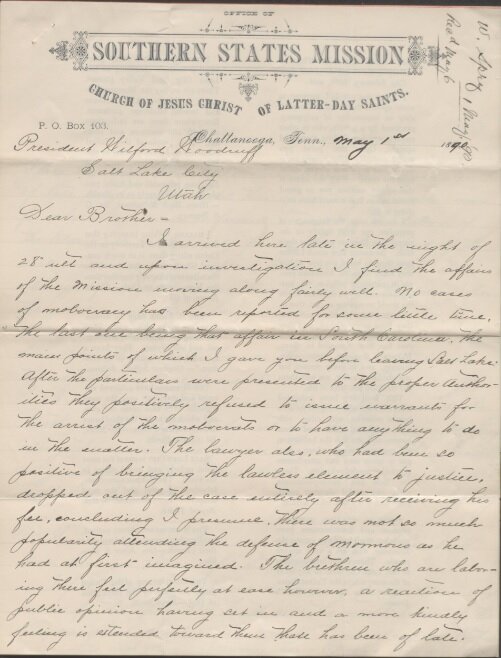 OFFICE OF
SOUTHERN STATES MISSION
CHURCH OF JESUS CHRIST OF LATTER-DAY SAINTS.
W. Spry
1 May '90
Recd May 6
P. O. Box 103.
Chattanooga, Tenn., May 1st 1890
President Wilford Woodruff
Salt Lake City
Utah
Dear Brother =
I arrived here late in the night of
28" ult and upon investigation I find the affairs
of the Mission moving along fairly well. No cases
of mobocracy has been reported for some little time,
the last one being that affair in South Carolina, the
main points of which I gave you before leaving Salt Lake.
After the particulars were presented to the proper Author-
ities they positively refused to issue warrants for
the arrest of the mobocrats or to have anything to do
in the matter. The lawyer also, who had been so
positive of bringing the lawless element to justice,
dropped out of the case entirely after receiving his
fee, concluding I presume, there was not so much
popularity attending the defense of mormons as he
had at first imagined. The brethren who are labor-
ing there feel perfectly at ease however, a reaction of
public opinion having set in and a more kindly
feeling is extended toward them than has been of late.